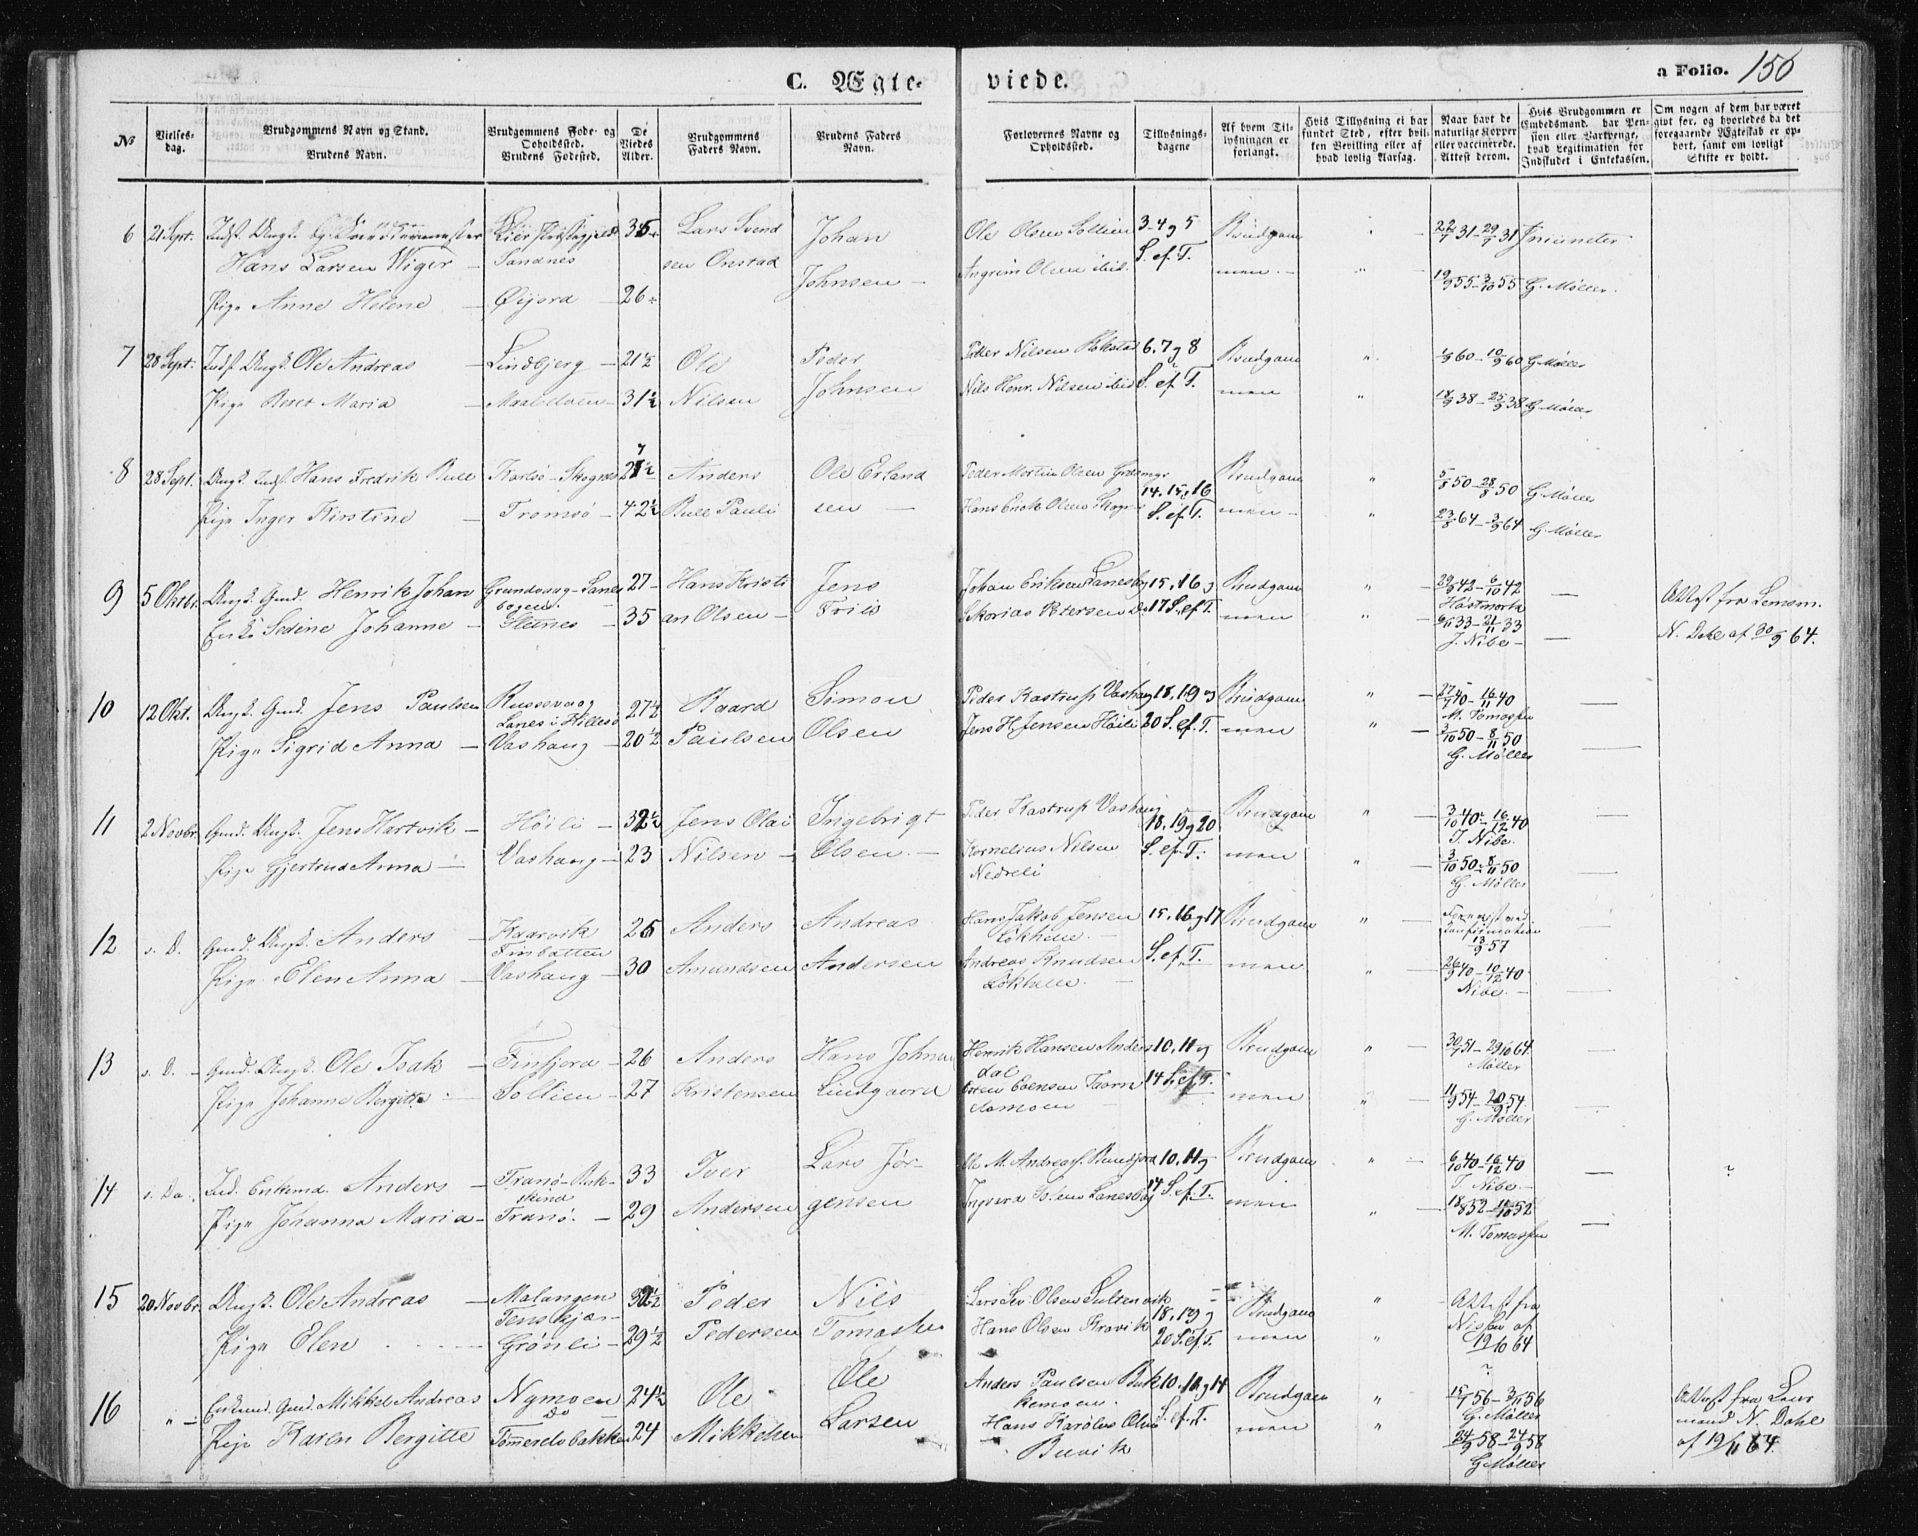 C. Ægte-
viede.
a Folio. 156
No
Vielses-
dag.
Brudgommens Navn og Stand.
Brudens Navn.
Brudgommens Føde- og
Opholdssted.
Brudens Fødested.
De
Viedes
Alder.
Brudgommens
Faders Navn.
Brudens Faders
Navn.
Forlovernes Navne og
Opholdssted.
Tillysnings-
dagene
Af hvem Til-
lysningen er
forlangt.
Hvis Tillysning ei har
fundet Sted, efter hvil-
ken Bevilling eller af
hvad lovlig Aarsag.
Naar havt de
naturlige Kopper
eller vaccinerede.
Attest derom.
Hvis Brudgommen er
Embedsmand, har Pen-
sion eller Vartpenge,
hvad Legitimation for
Indskudet i Enkekassen.
Om nogen af dem har været
gift før, og hvorledes da det
foregaaende Ægteskab er op-
hørt, samt om lovligt
Skifte er holdt.
6 21 Sept.
Hans Larsen Wiger
Pige Anne Helene
Sandnes
Øijord
26
Lars Svend
sen Onstad
Johan
Johnsen
Ole Olsen Sollien
Angrim Olsen ibid.
3-4 og 5
S. ef. T.
Brudgom
men
22/7 31 - 29/7 31
19/9 55 - 3/10 55 G. Møller.
7 28 Sept. Indf. Ungk. Ole Andreas
Pige Beret Maria
Lindbjerg
21 1/2
31 1/2
Ole
Nilsen
Peder
Johnsen
Peder Nilsen Bakstad
Nils Henr. Nilsen ibid
6. 7 og 8
S. ef. T.
Brudgom
men
G Møller
18/9 38 - 25/9 38 G. Møller
8 28 Sept. Ungk. Indf. Hans Fredrik Bull
Pige Inger Kirstine
Karlsø - Skognes
Tromsø
42 1/2
Anders
Bull Pauli
Ole Erland
sen
Peder Martin Olsen
Hans Enok Olsen Skognes
14. 15. 16
S. ef. T.
Brudgom
men
5/8 50 - 28/8 50 G. Møller
23/8 64 - 3/9 64 G. Møller
9 5 Oktbr. Ungk. Gmd. Henrik Johan
Enke Sedine Johanne
Grundvaag - Lanes
bogen.
Sletnes
27
35
Hans Kristi
an Olsen
Jens
Friis
Johan Eriksen Lanesb
Petersen Do
15. 16 og
17 S. ef. T.
Brudgom
men
29/9 42 - 6/10 42
33 - 21/11 33
J. Nibe
Attest fra Lensm.
N. Dahl af 30/9 64.
10 12 Okt. Ungk. Gmd. Jens Paulsen
Pige Sigrid Anna
Russevaag
Lanes i Hillesø
Vashaug
27 1/2
20 1/2
Baard
Paulsen
Simon
Olsen
Peder Kastrup Vashaug
Jens H. Jensen Høili
18. 19 og
20 S. ef. T.
Brudgom
men
27/7 40 - 16/11 40
M. Tomassen
3/10 50 - 8/11 50
G. Møller
11 2 Novbr. Gmd. Ungk. Jens Hartvik
Pige Gjertrud Anna
Høili
Vashaug
32 1/2
23
Jens Olai
Nilsen
Ingebrigt
Olsen
Peder Kastrup Vashaug
Kornelius Nilsen
Nedreli
18. 19 og 20
S. ef. T.
Brudgom
men
3/10 40 - 16/12 40
J. Nibe.
3/10 50 - 8/11 50
G. Møller
12 s. D. Gmd. Ungk. Anders
Pige Elen Anna
Kaarvik
Finbatten
Vashaug
30
Anders
Amundsen
Andreas
Andersen
Hans Jakob Jensen
Løkhelle
Andreas Knudsen
Løkhelle
15. 16 og 17
S. ef. T.
Brudgom
men
Konfirmation
13/9 57
26/9 40 - 10/12 40
Nibe.
13 s. D. Gmd. Ungk. Ole Isak
Pige Johanne Bergitte
Finfjord
Sollien
26
27
Anders
Kristensen
Hans Johnsen
Lindgaard
Henrik Hansen Anders
dal
Coensen Taarn
elvmoen
10. 11 og
14 S. ef. T.
Brudgom
men
30/7 51 - 29/10 64.
Møller
11/9 54 - 20/9 54
G. Møller
14 s. Da. Ind. Enkemd. Anders
Pige Johanna Maria
Tranø - Buk-
skind
Tranø.
33
29
Iver
Andersen
Lars Jør-
gensen
Ole M. Andreas. Rundfjord
Ingvard Lanesbog
10. 11 og
14 S. ef. T.
Brudgom
men
6/10 40 - 16/12 40
J. Nibe.
18/8 52 - 52
M. Tomassen
15 20 Novbr. Ungk. Ole Andreas
Pige Elen
Malangen
Tenskjær
Grønli
29 1/2
Peder
Pedersen
Nils
Tomassen
Olsen Sultenvik
Hans Olsen Kravik
18. 19 og
20 S. ef. T.
Brudgom
men
Attest fra
Nissen af
19/10 64
16 " Enkemd. Gmd. Mikkel Andreas
Pige Karen Bergitte
Nymoen
Do
Tømmerelvbakken
24 1/2
24
Ole
Mikkelsen
Ole
Larsen
Anders Paulsen Bak
kemoen.
Hans Karolus Olsen
Buvik
10. 11 og 14
S. ef. T.
Brudgom
men
15/9 56 - 3/11 56
G. Møller
24/9 58 - 24/9 58
G Møller
Attest fra Lens
mand N. Dahl
af 19/11 64.